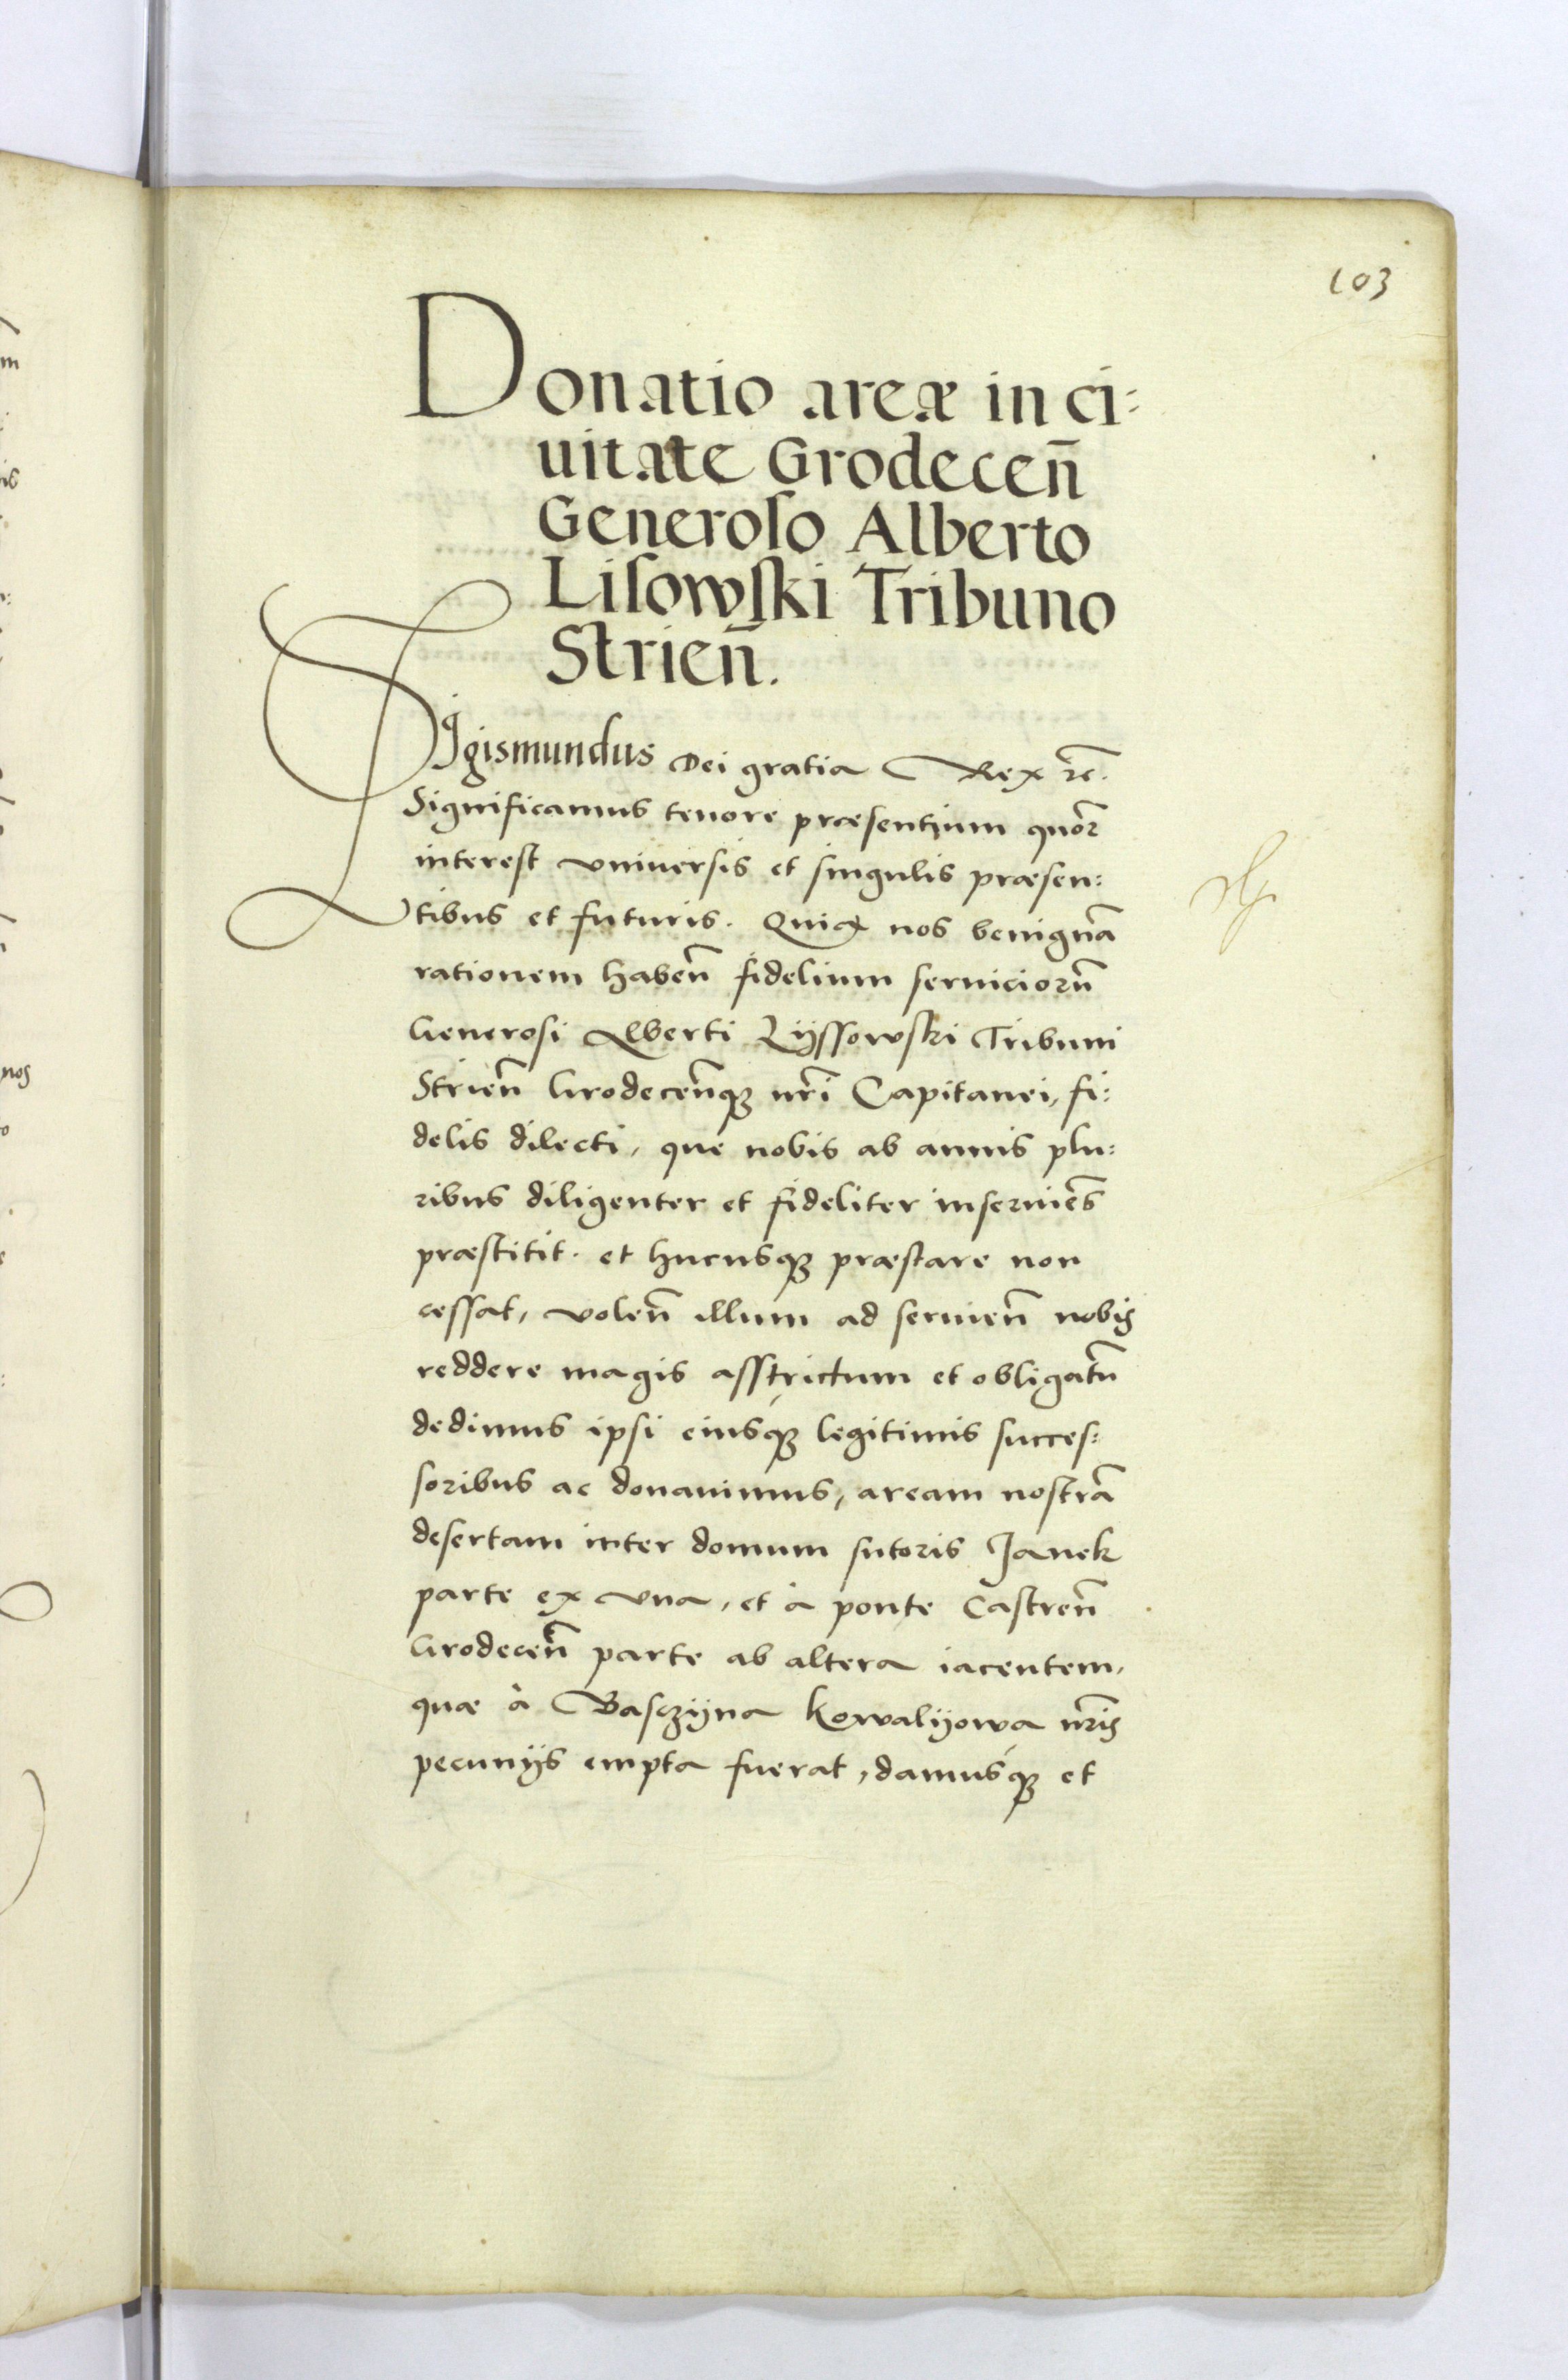 103
Donatio areæ in ci:
uitate Grodeceñ
Generoso Alberto
Lisowski Tribuno
Strieñ.
Sigismundus Dei gratia Rex rc̃.
Significamus tenore præsentium quor̃
interest vniuersis et singulis præsen:
tibus et futuris. Quia nos benignã
rationem habeñ fidelium seruiciorũ
Generosi Alberti Lÿssowski Tribuni
Strieñ Grodeceñq3 nr̃i Capitanei, fi:
delis dilecti, que nobis ab annis plu:
ribus diligenter et fideliter inseruiẽs
præstitit. et hucusq3 præstare non
cessat, voleñ illum ad seruieñ nobis
reddere magis asstrictum et obligatũ
dedimus ipsi eiusq3 legitimis succes:
soribus ac donauimus, aream nostrã
desertam inter domum sutoris Janek
parte ex vna, et à ponte Castreñ
Grodeceñ parte ab altera iacentem,
quæ à Basczÿna Kowalÿowa nr̃is
pecunÿs empta fuerat, damusq3 et